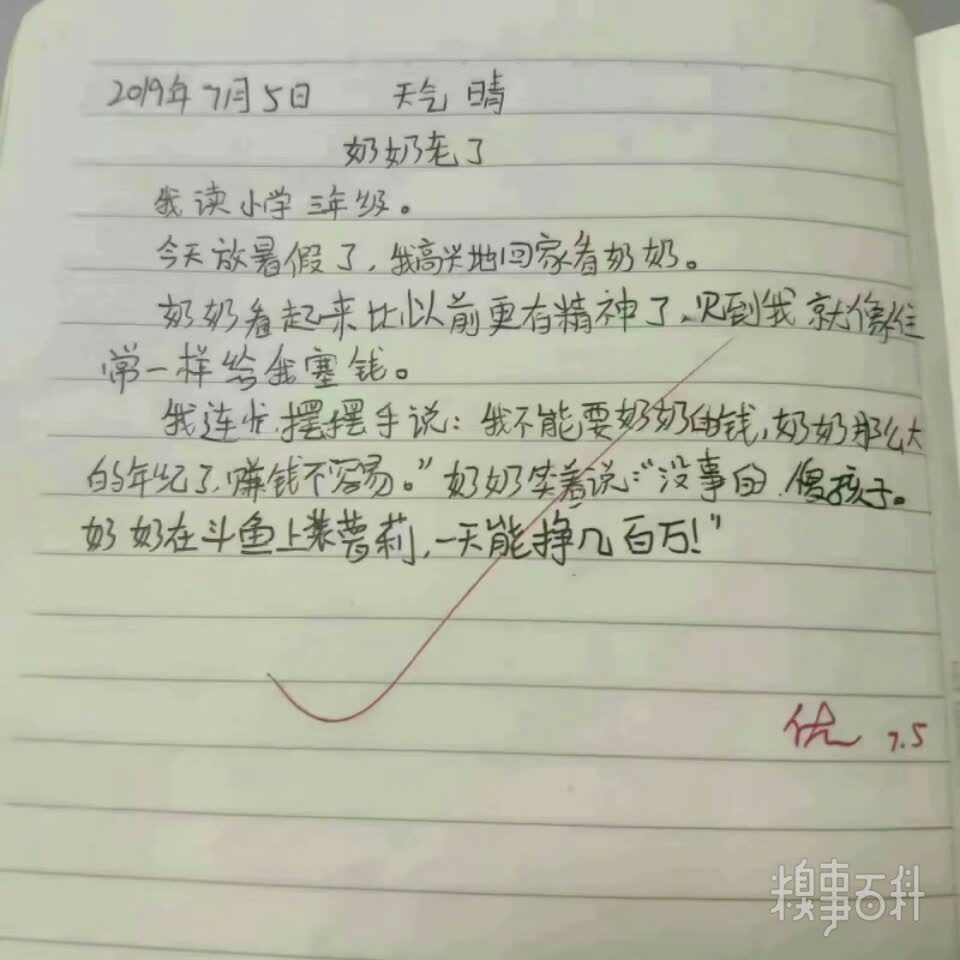 2019年7月5日 天气 晴
奶奶老了
我读小学三年级。
今天放暑假了,我高兴地回家看奶奶。
奶奶看起来比以前更有精神了,见到我就像往
常一样给我塞钱。
我连忙摆摆手说:我不能要奶奶的钱,奶奶那么大
的年纪了,赚钱不容易。”奶奶笑着说:“没事的,傻孩子。
奶奶在斗鱼上装萝莉,一天能挣几百万!”
优 7.5
糗事百科